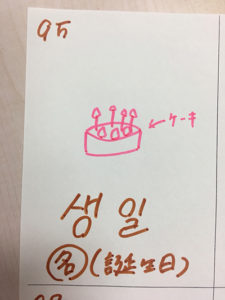 95
ケーキ
생일
名(誕生日)